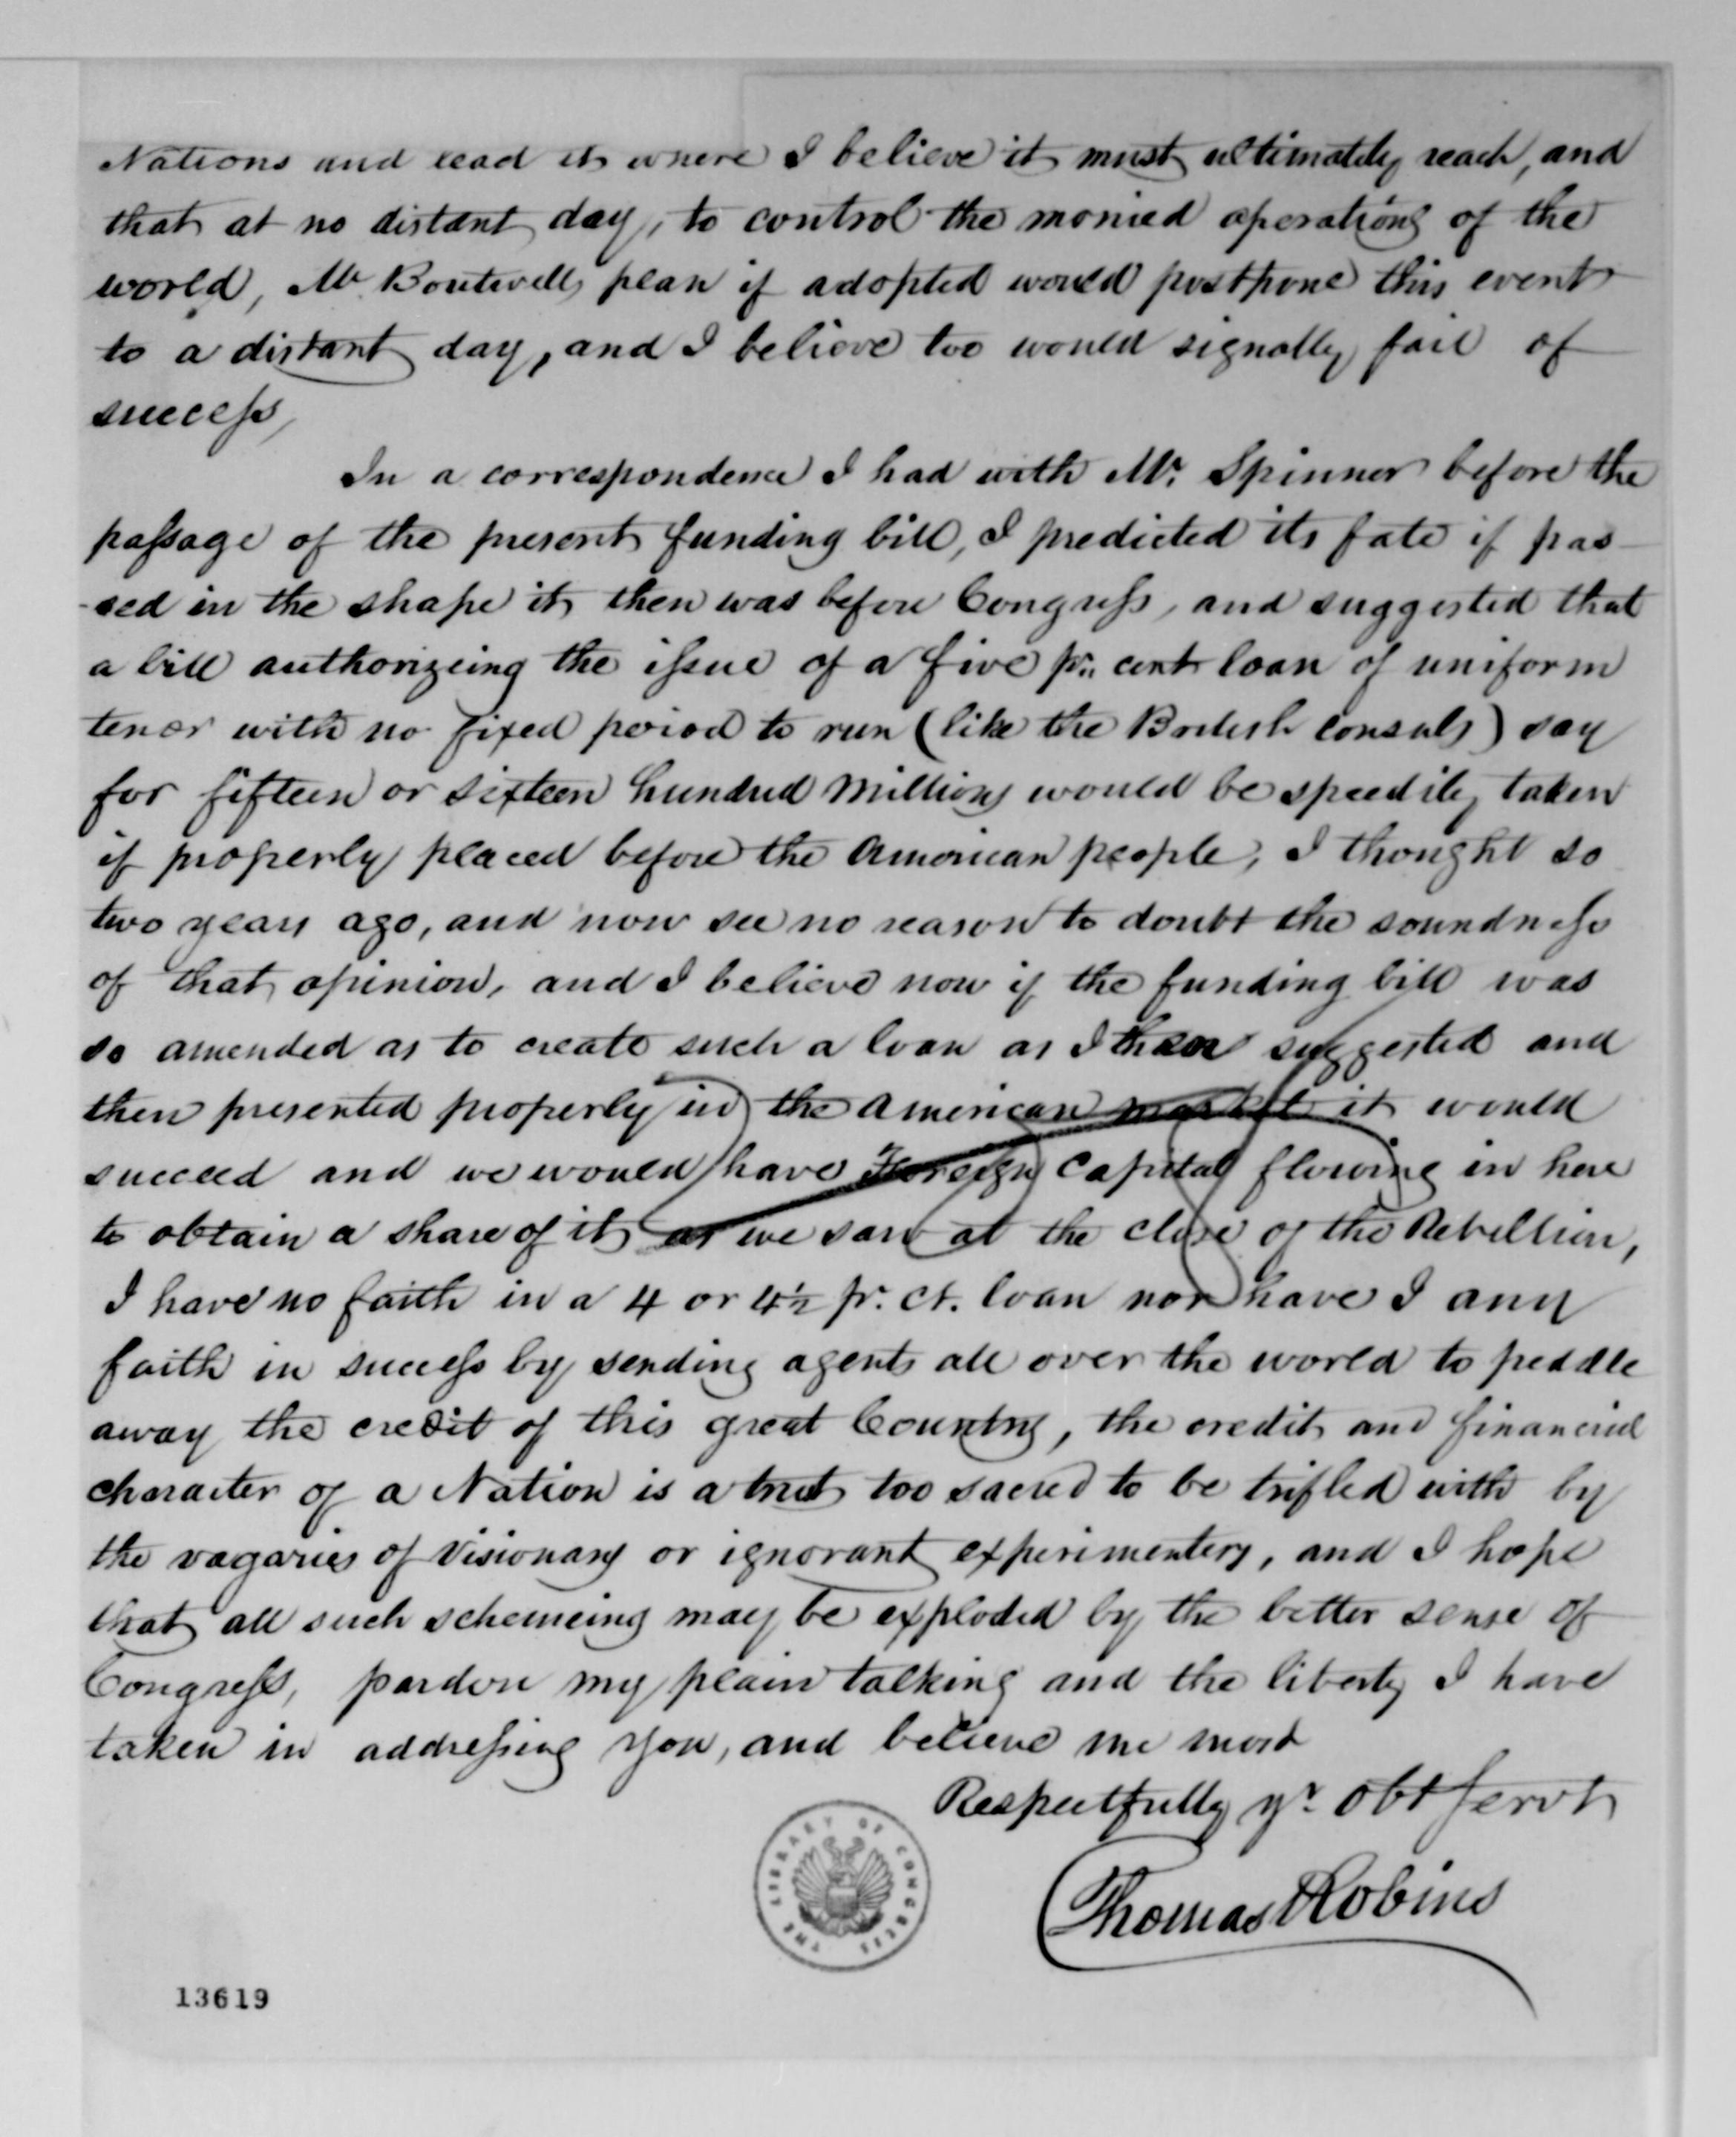 Nations and lead it where I believe it must ultimately reach, and
that at no distant day, to control the monied operations of the
world, Mr Boutwells plan if adopted would postpone this event
to a distant day, and I believe too would signally fail of
success,
In a correspondence I had with Mr. Spinner before the
passage of the present funding bill, I predicted its fate if pas-
-sed in the shape it then was before Congress, and suggested that
a bill authorizeing the issue of a five pr. cent loan of uniform
tenor with no fixed period to run (like the British Consuls) say
for fifteen or sixteen hundred Millions would be speedily taken
if properly placed before the American people, I thought so
two years ago, and now see no reason to doubt the soundness
of that opinion, and I believe now if the funding bill was
so amended as to create such a loan as I then suggested and
then presented properly in the American market it would
succeed and we would have Foreign Capital flowing in here
to obtain a share of it as we saw at the close of the Rebellion,
I have no faith in a 4 or 4½ pr. ct. loan nor have I any
faith in success by sending agents all over the world to peddle
away the credit of this great Country, the credit and financial
character of a Nation is a trust too sacred to be trifled with by
the vagaries of Visionary or ignorant experimenters, and I hope
that all such schemeing may be exploded by the better sense of
Congress, pardon my plain talking and the liberty I have
taken in addressing you, and believe me most
Respectfully yr. Obt Servt
Thomas Robins
THE LIBRARY OF CONGRESS
13619